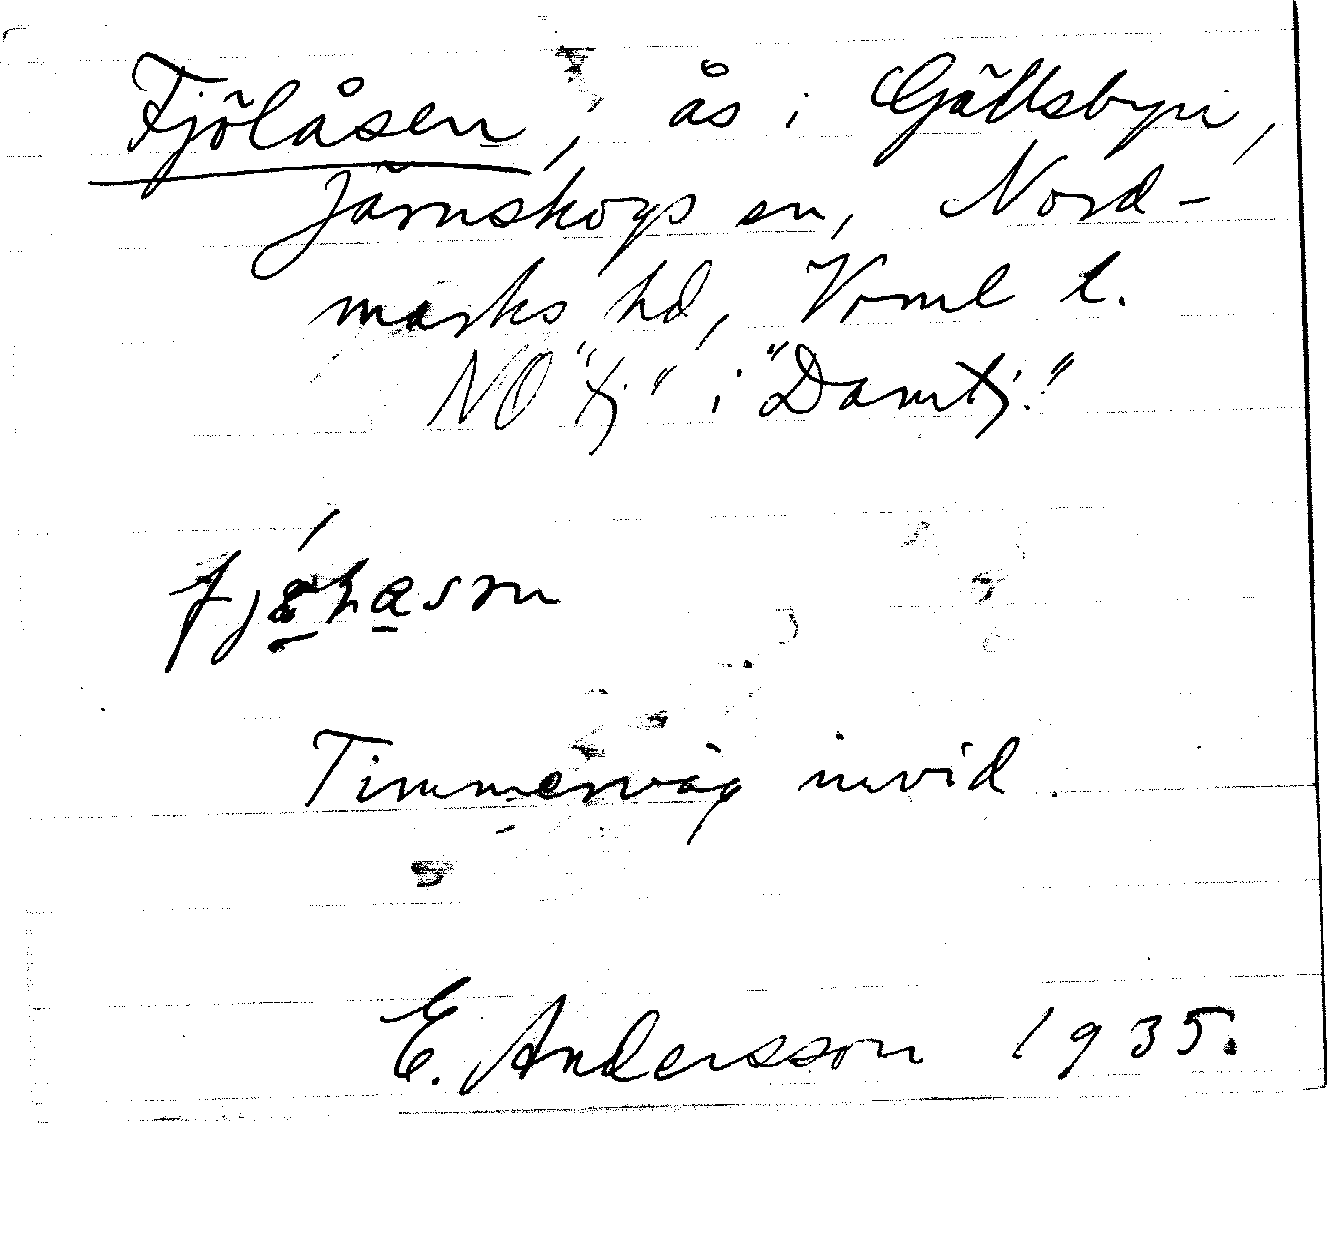 Fjölåsen, ås i Gällsbyn,
Järnskogs sn, Nord-
marks hd, Vrml l.
NO "tj" i "Damtj."
Timmerväg invid.
E. Andersson 1935.